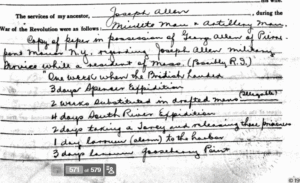 The services of my ancestor, Joseph Allen, during the
War of the Revolution were as follows Minute Man & Artillery Man.
Copy of Paper in possession of Geary Allen of Prince
N.Y. regarding Joseph Allen military
service while a resident of Mass (Possibly R.I.)
"One week when the British landed
3 days Spencer Expidition
2 weeks substituted in drafted mens (Illegible)
4 days South River Expedition
2 days taking a Torey and relieving three prisoners
1 day to the harbor
3 days Gooseberry Point
571 of 579